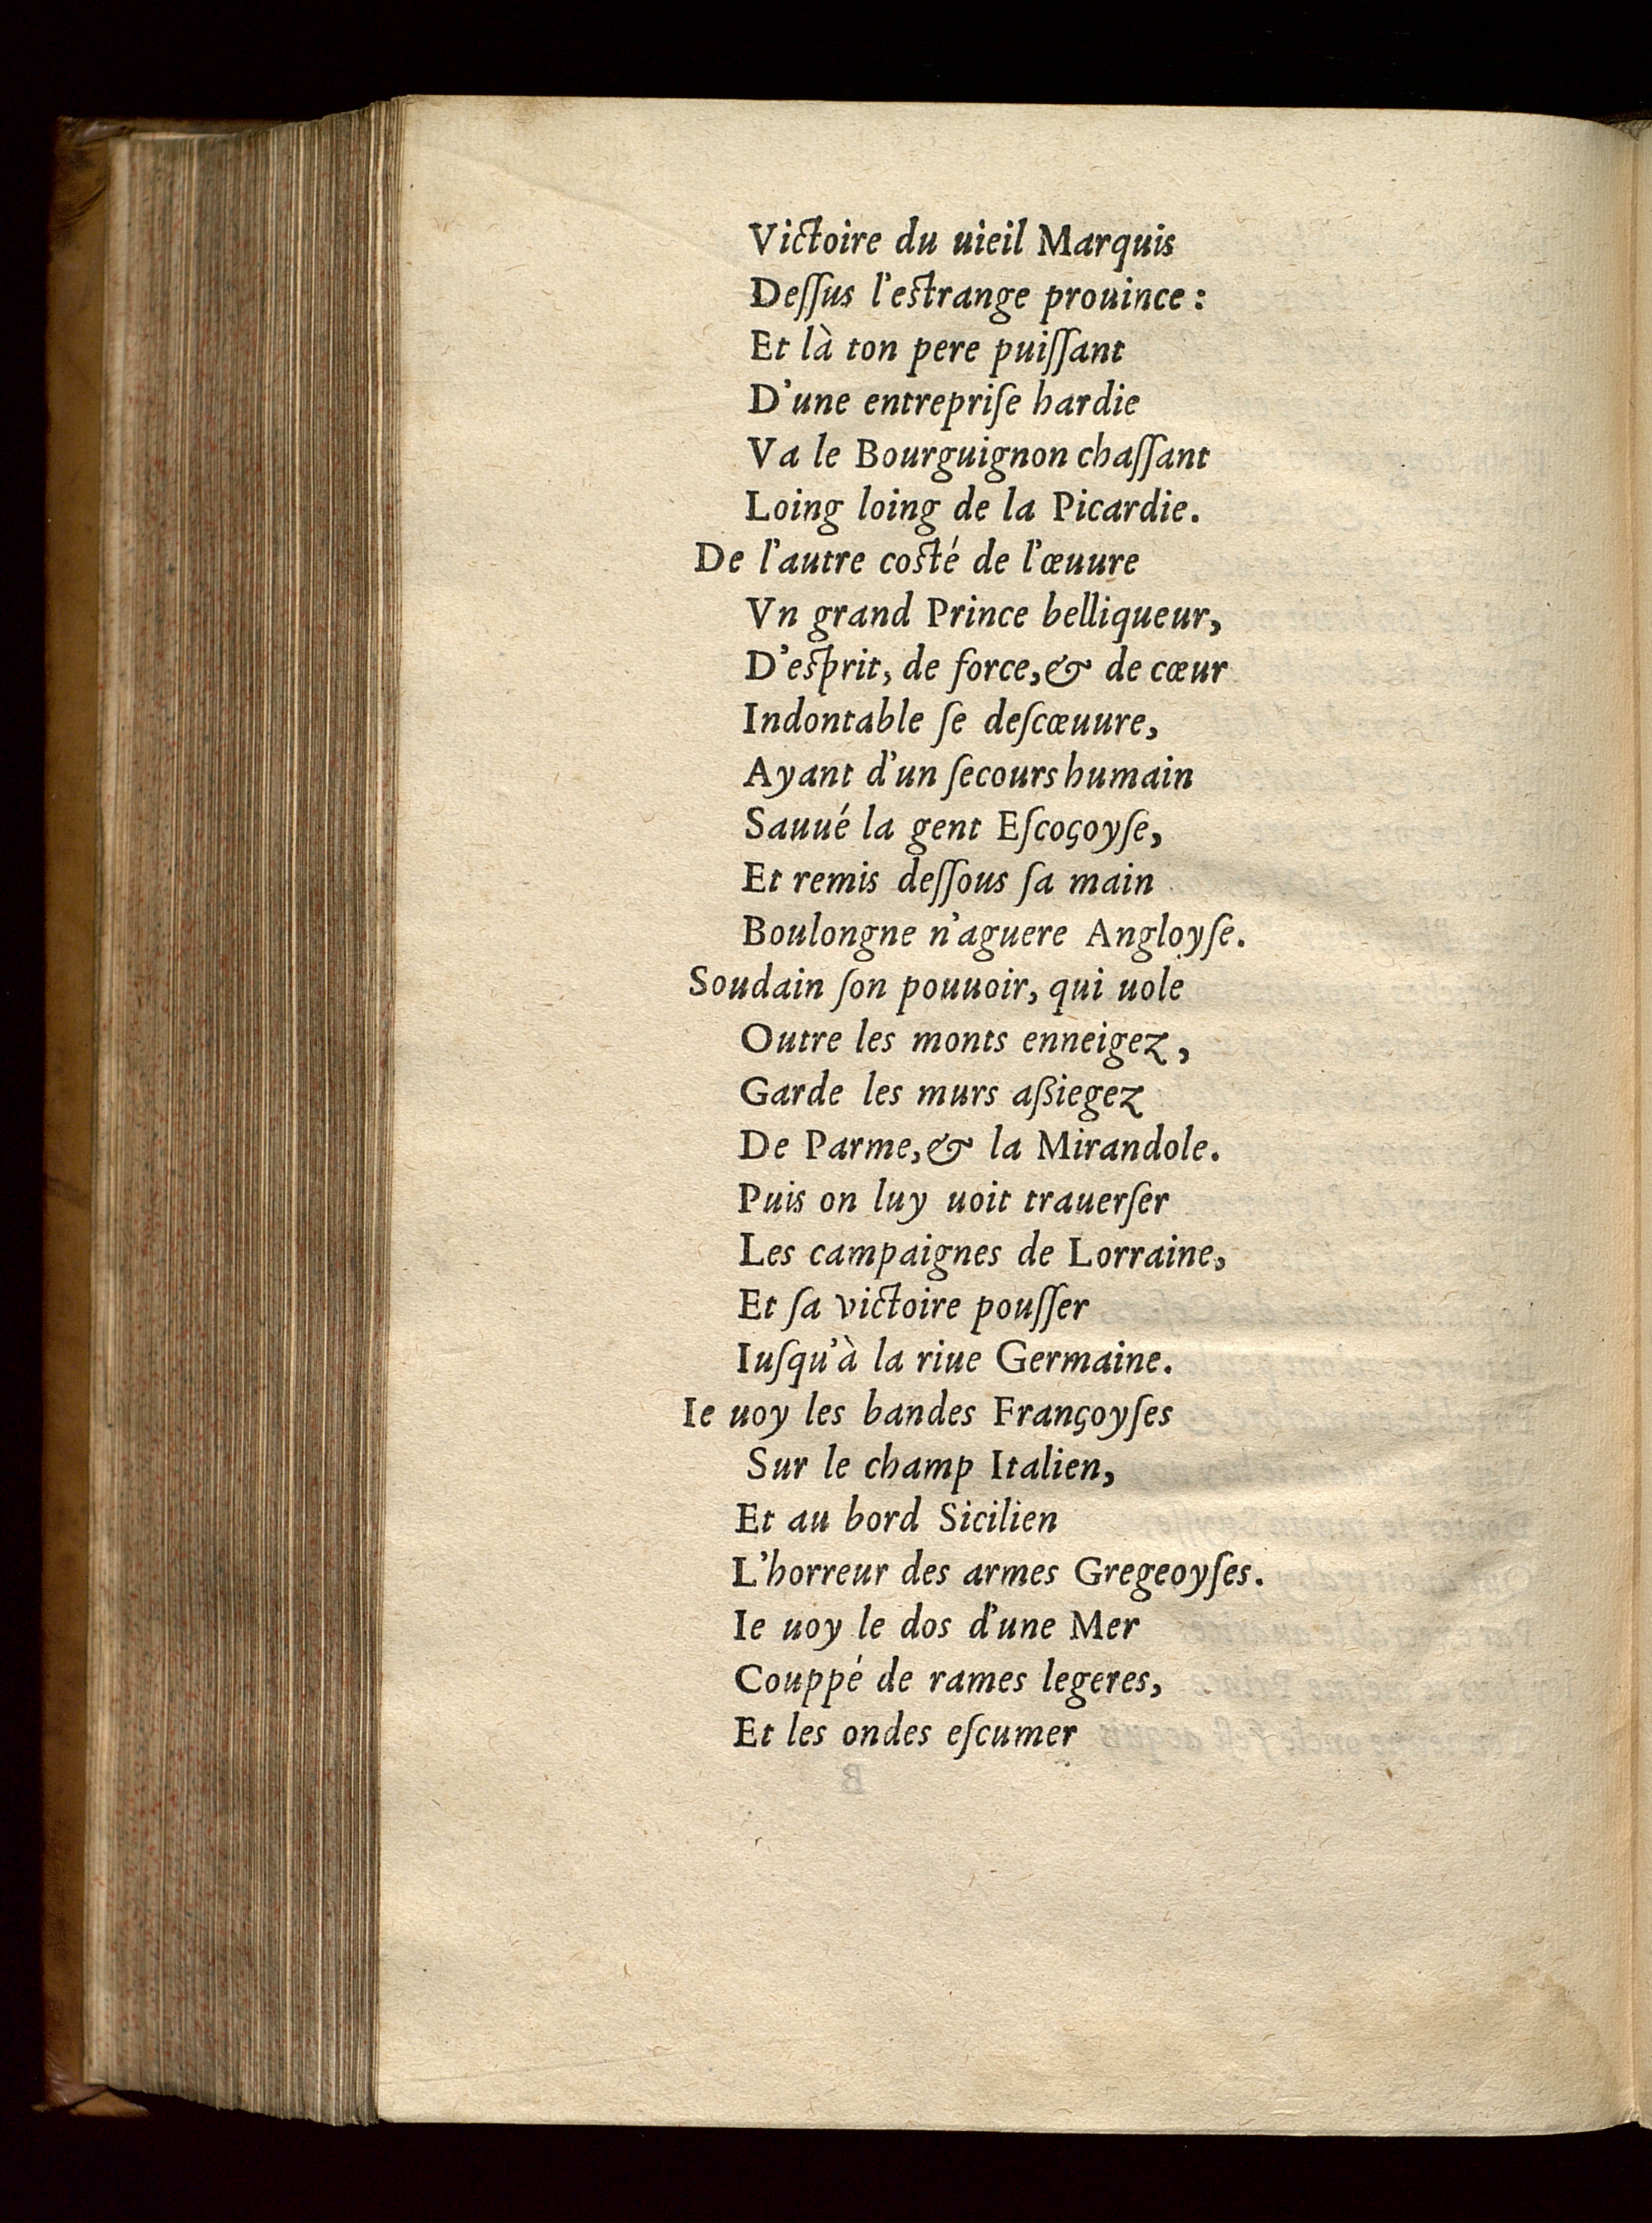 Victoire du uieil Marquis
Deſſus l'eſtrange prouince :
Et là ton pere puiſſant
D'une entrepriſe hardie
Va le Bourguignon chaſſant
Loing loing de la Picardie.
De l'autre coſté de l'œuure
Vn grand Prince belliqueur,
D'eſprit, de force, & de cœur
Indontable ſe deſcœuure,
Ayant d'un ſecours humain
Sauué la gent Eſcoçoyſe,
Et remis deſſous ſa main
Boulongne n'aguere Angloyſe.
Soudain ſon pouuoir, qui uole
Outre les monts enneigez,
Garde les murs aßiegez
De Parme, & la Mirandole.
Puis on luy uoit trauerſer
Les campaignes de Lorraine,
Et ſa victoire pouſſer
Iuſqu'à la riue Germaine.
Ie uoy les bandes Françoyſes
Sur le champ Italien,
Et au bord Sicilien
L'horreur des armes Gregeoyſes.
Ie uoy le dos d'une Mer
Couppé de rames legeres,
Et les ondes eſcumer